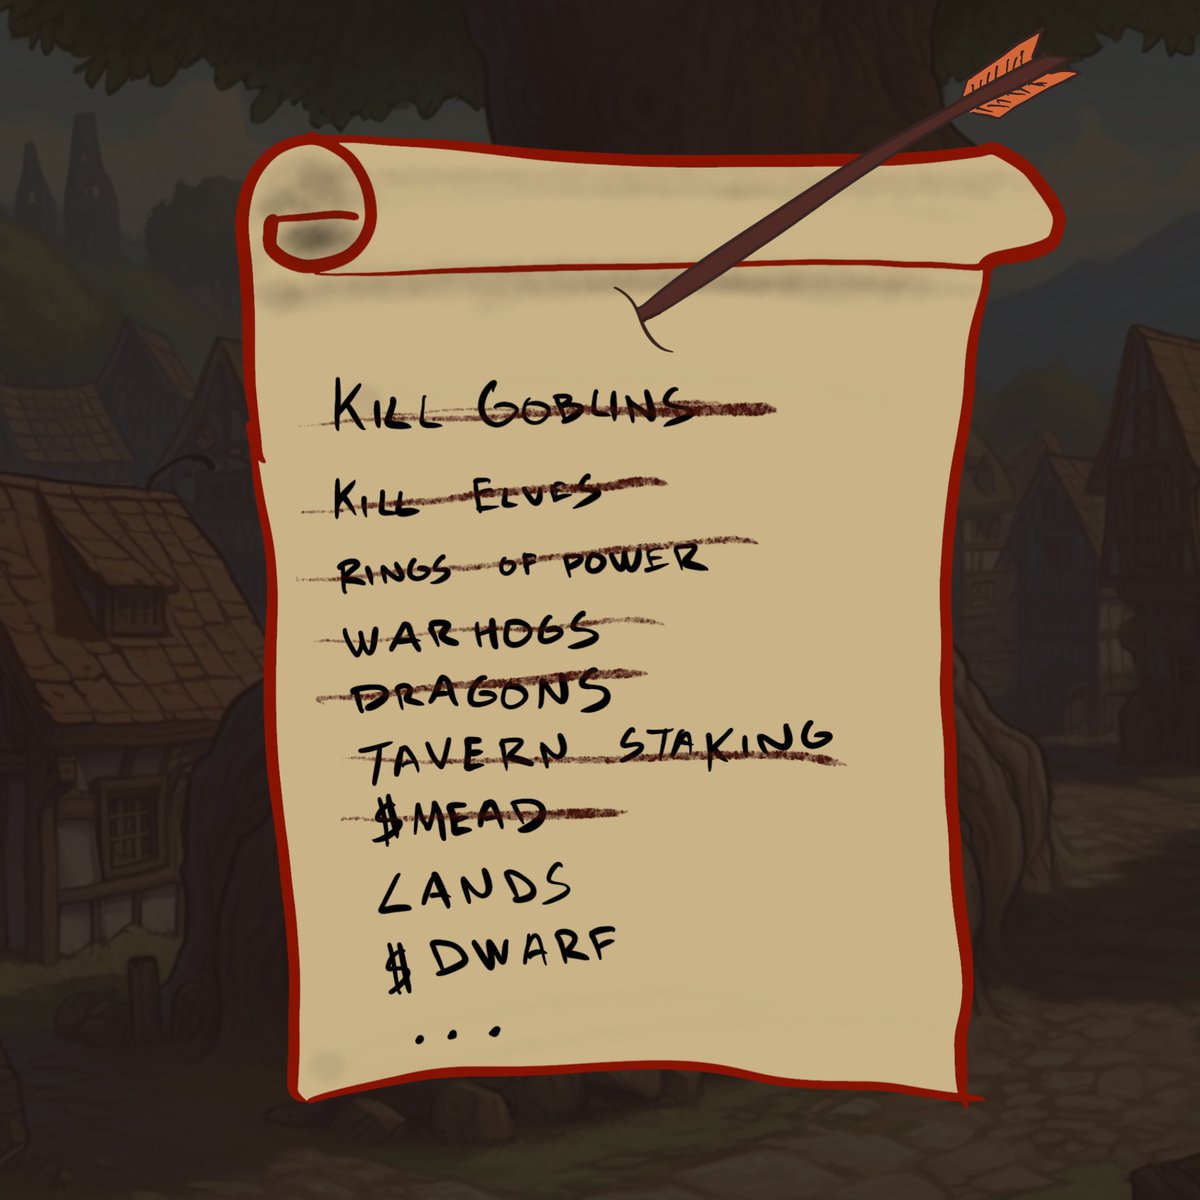 KILL GOBLINS
KILL ELVES
RINGS OF POWER
WARHOGS
DRAGONS
TAVERN STAKING
$MEAD
LANDS
$DWARF
...